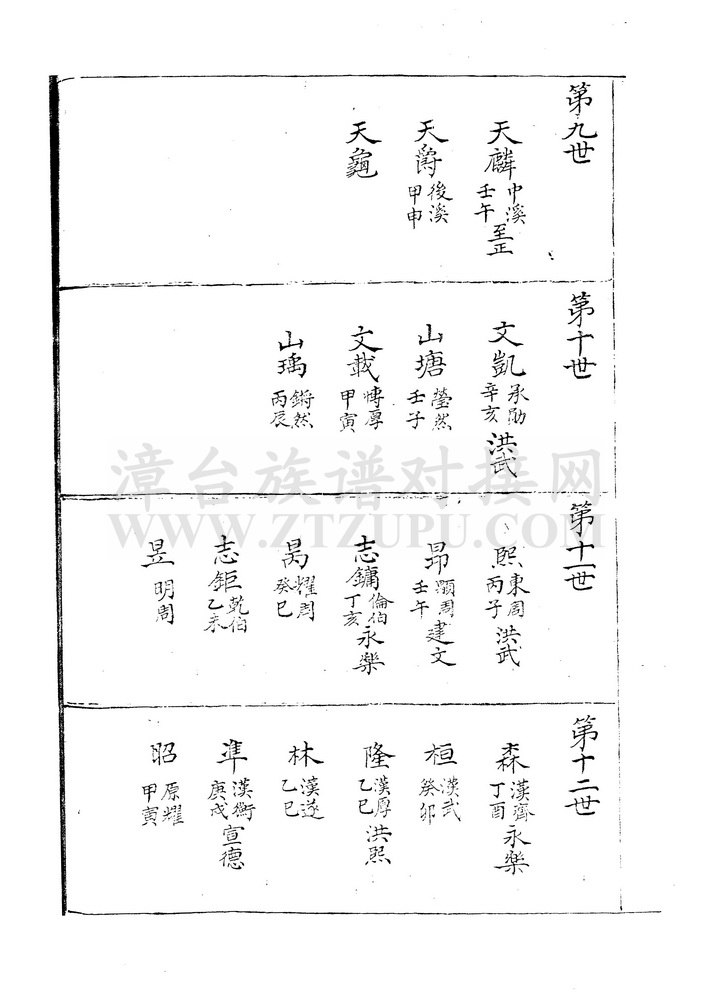 第九世
天麟 巾溪 壬午 至正
天爵 後溪 甲申
天龜
第十世
文凱 承勛 辛亥 洪武
山塘 瑩然 壬子
文載 愽厚 甲寅
山瑀 鏘然 丙辰
第十一世
熙 東周 丙子 洪武
昂 灝周 壬午 建文
志鏞 倫伯 丁亥 永樂
昺 耀周 癸巳
志鉅 乾伯 乙未
昱 明周
第十二世
森 漢齊 丁酉 永樂
桓 漢武 癸卯
隆 漢厚 乙巳 洪熙
林 漢遂 乙巳
準 漢衡 庚戌 宣德
昭 原耀 甲寅
漳台族谱对接网
WWW.ZTZUPU.COM